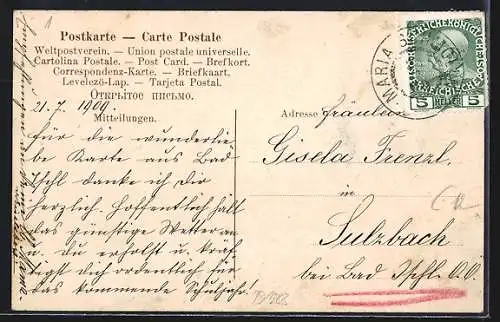 Postkarte — Carte Postale
Weltpostverein. — Union postale universelle.
Cartolina Postale. — Post Card. — Brefkort.
Correspondenz-Karte. — Briefkaart.
Levelező-Lap. — Tarjeta Postal.
Открытое письмо.
21. 7. 1909.
Mitteilungen.
für die wunderli=
be Karte aus Bad
Ischl danke ich Dir
herzlich. Hoffentlich hält
das günstige Wetter an
u. du erholst u. kräf
tigst dich ordentlich für
das kommende Schuljahr!
MARIA
5 HELLER 5
Adresse Fräulein
Gisela Frenzl.
in
Sulzbach
bei Bad Ischl. O.Ö.